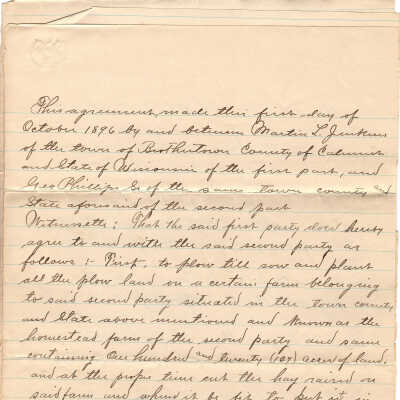 This agreement, made this first day of
October 1896 by and between Martin L. Jenkins
of the town of Brothertown County of Calumet
and State of Wisconsin of the first part, and
Geo Phillips Sr of the same town county and
State aforesaid of the second part
Witnesseth; That the said first party doth hereby
agree to and with the said second party as
follows:- First. to plow till sow and plant
all the plow land on a certain farm belonging
to said second party situated in the town county
and State above mentioned and known as the
homestead farm of the second party and same
containing One hundred and twenty (120) acres of land.
and at the proper time cut the hay raised on
said farm and when it be fit to put it in